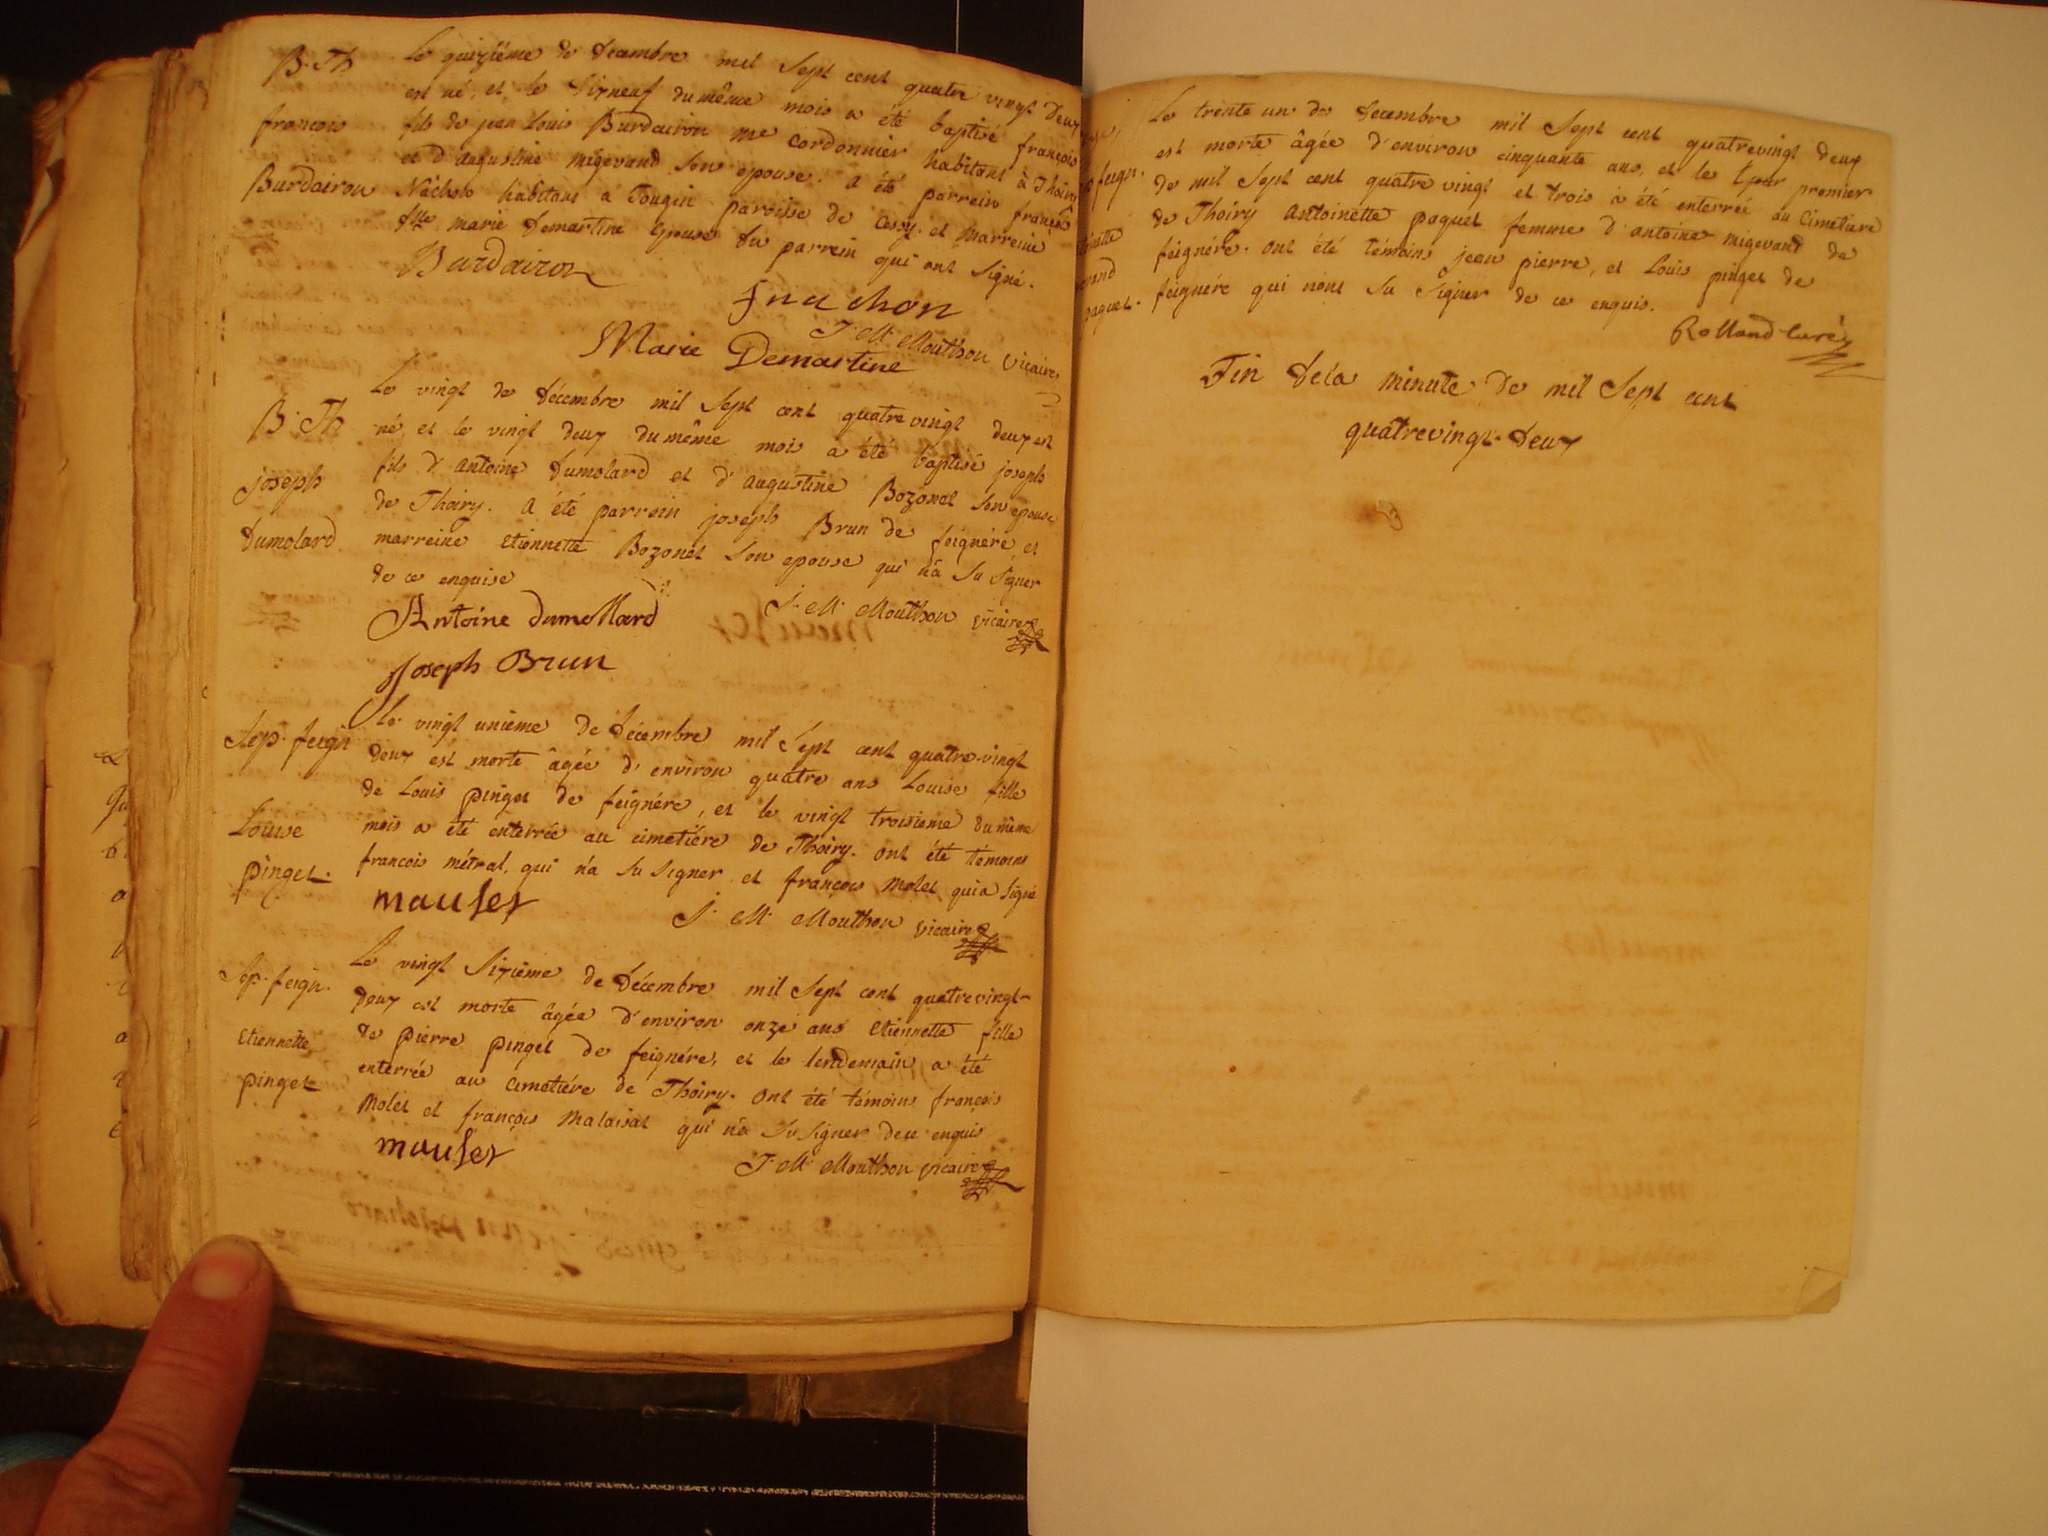 B. Th
françois
Burdairon
Le quizième de decembre mil Sept cent quatre vingt deux
est né, et, le Dixneuf du même mois a été baptisé françois
fils de jean Louis Burdairon me cordonnier habitant à Thoiry
et d'augustine migevand son epouse. a été parrein françois
Nâchon habitant a Tougin paroisse de Cessy. et Marreine
dlle marie Demartine epouse du parrein qui ont signé.
Burdairon
fnachon
J. M. Mouthon vicaire
Marie Demartine
B. Th
joseph
Dumolard
Le vingt de décembre mil Sept cent quatrevingt deux est
né, et le vingt deux du même mois a été baptisé joseph
fils d'antoine Dumolard et d'augustine Bozonet son epouse
de Thoiry. a été parrein joseph Brun de feignére et
marreine Etiennette Bozonet son epouse qui n'a su signer
de ce enquise
Antoine Dumollard
J. M. Mouthon vicaire
Joseph Brun
Sep. feign
Louise
pinget.
Le vingt unième de Décembre mil Sept cent quatre-vingt
deux est morte âgée d'environ quatre ans Louise fille
de Louis pinget de feignére, et le vingt troisieme du même
mois a été enterrée au cimetiére de Thoiry. ont été témoins
francois métral, qui n'a su signer et françois Molet qui a signé
J. M. Mouthon vicaire
Sep. feign.
Etiennette
pinget
Le vingt Sixième de Décembre mil Sept cent quatrevingt-
deux est morte âgée d'environ onze ans Etiennette fille
de pierre pinget de feignére, et le lendemain a été
enterrée au cimetiére de Thoiry. ont été témoins françois
Molet et françois Malaisat qui n'a su signer de ce enquis
J. M. Mouthon vicaire
feign.
paquet.
Le trente un de decembre mil Sept cent quatrevingt deux
est morte âgée d'environ cinquante ans, et le jour premier
de mil Sept cent quatre vingt et trois a été enterrée au Cimetiere
de Thoiry antoinette paquet femme d'antoine migevand de
feignére. ont été témoins jean pierre, et Louis pinget de
feignére qui n'ont su signer de ce enquis.
Rolland curé
Fin dela minute de mil Sept cent
quatrevingt-deux